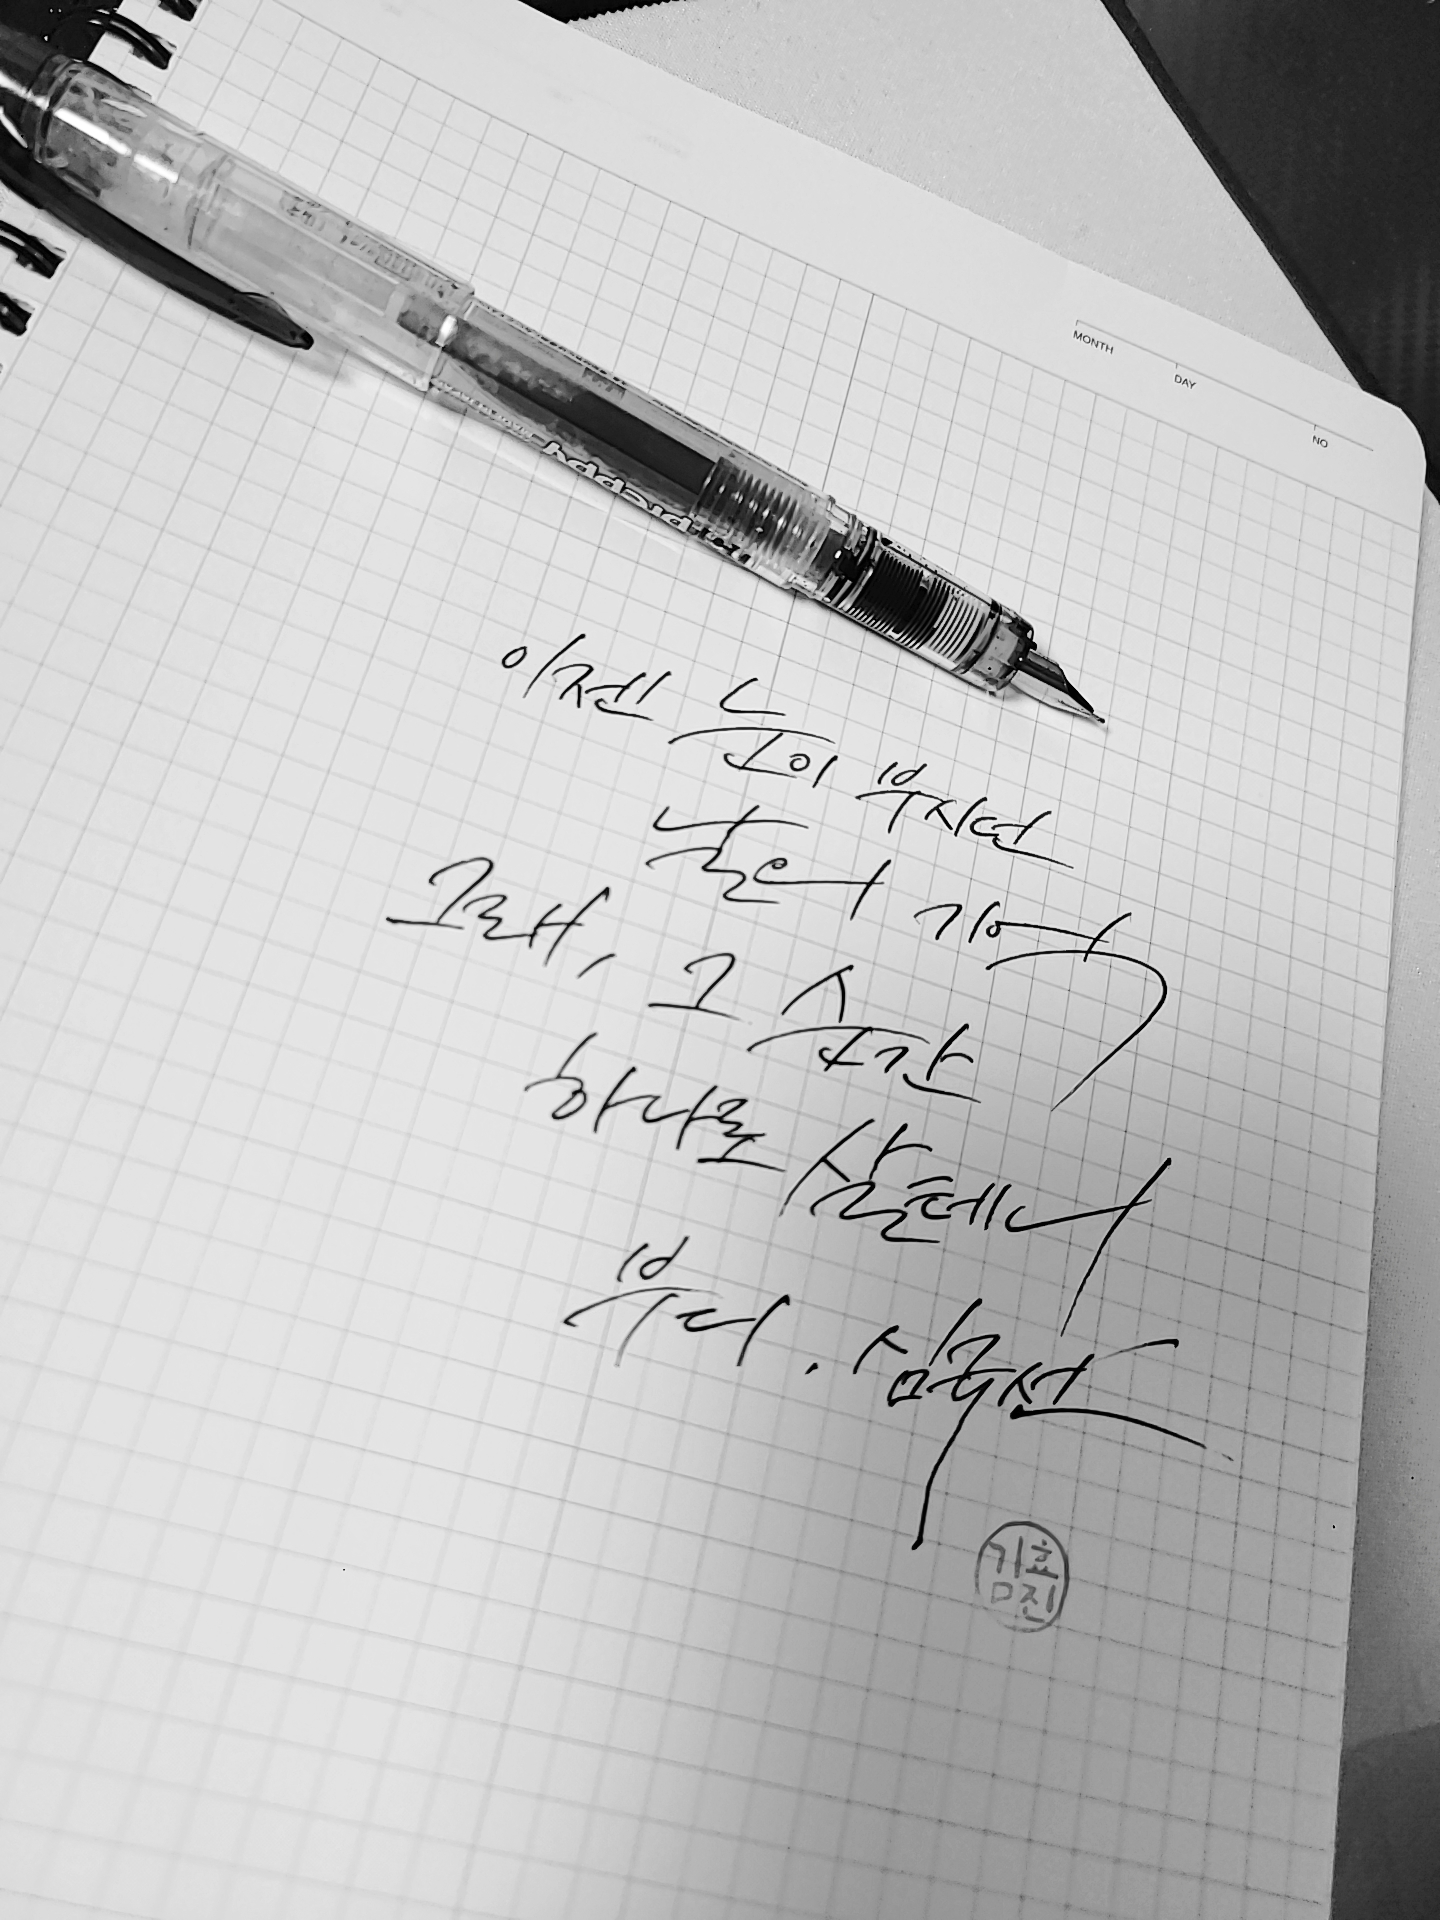 preppy
MONTH
DAY
NO
이젠 눈이 부시던
날의 기억
그래, 그 순간
하나로 살테니
부디. 심규선
김효진